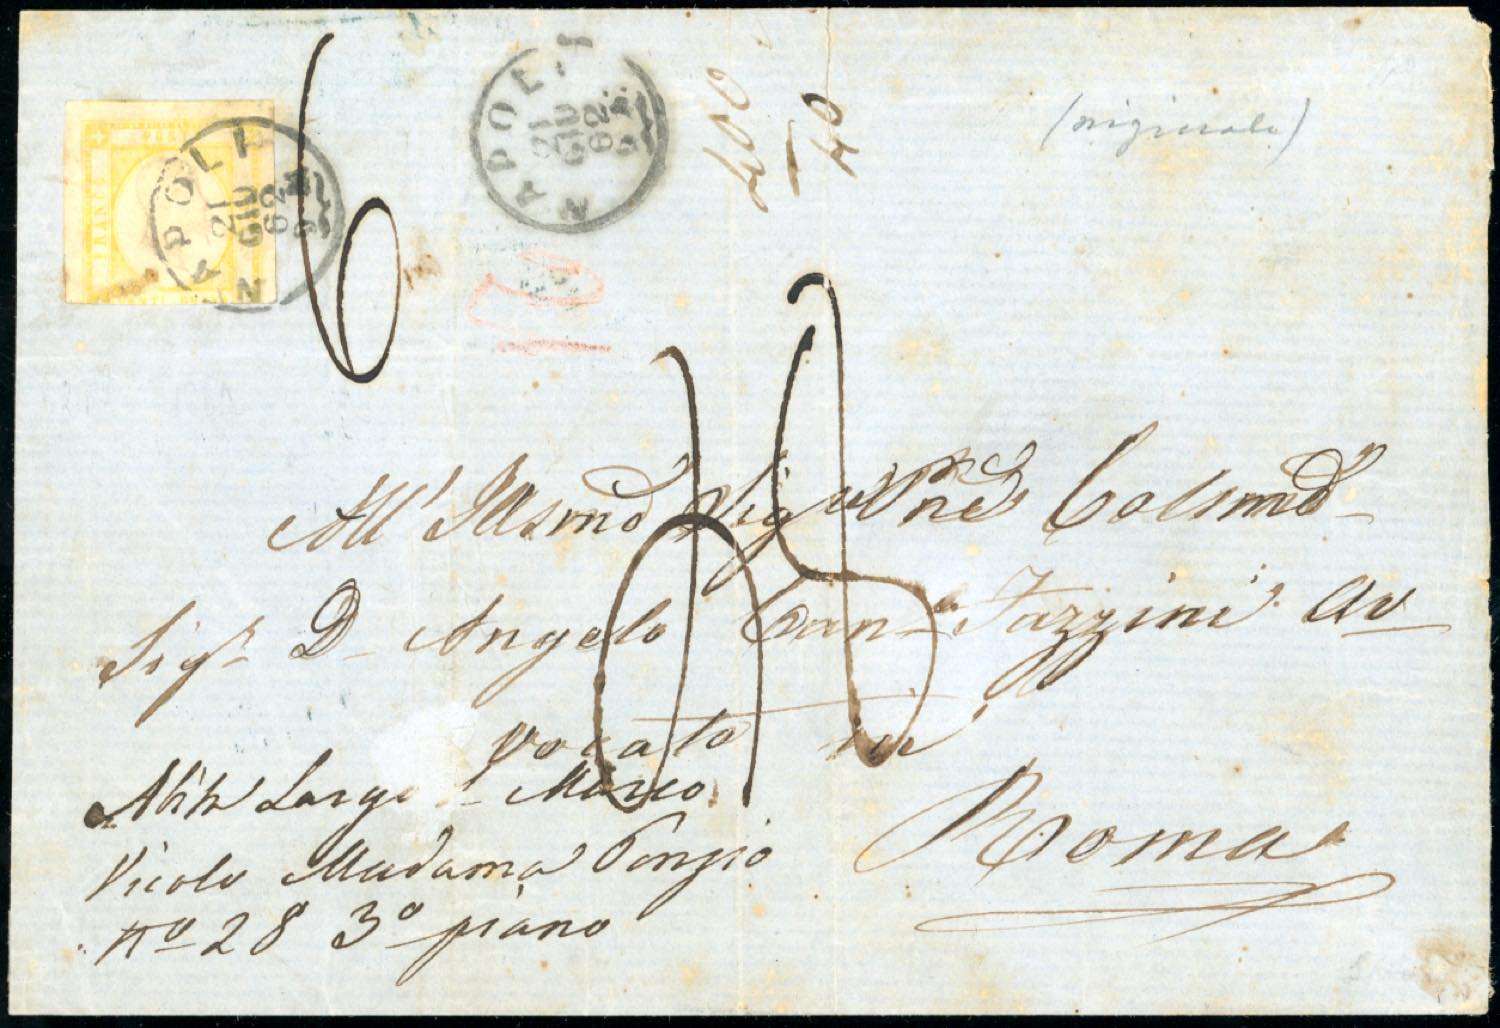 FRANCO
NAPOLI
21
GIU
62
NAPOLI
21
GIU
62
6
(originale)
All' Illsmo Sig. Pne Colsmo
Sigr D Angelo Can Tazzini Av
vocato in
Roma
Abita Largo S. Marco
Vicolo Madama Ponzio
No 28 3o piano